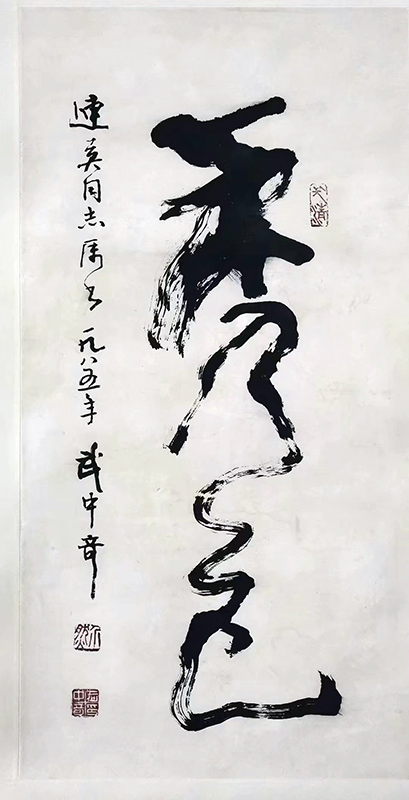 秀色
英同志属书 一九八五年 武中奇